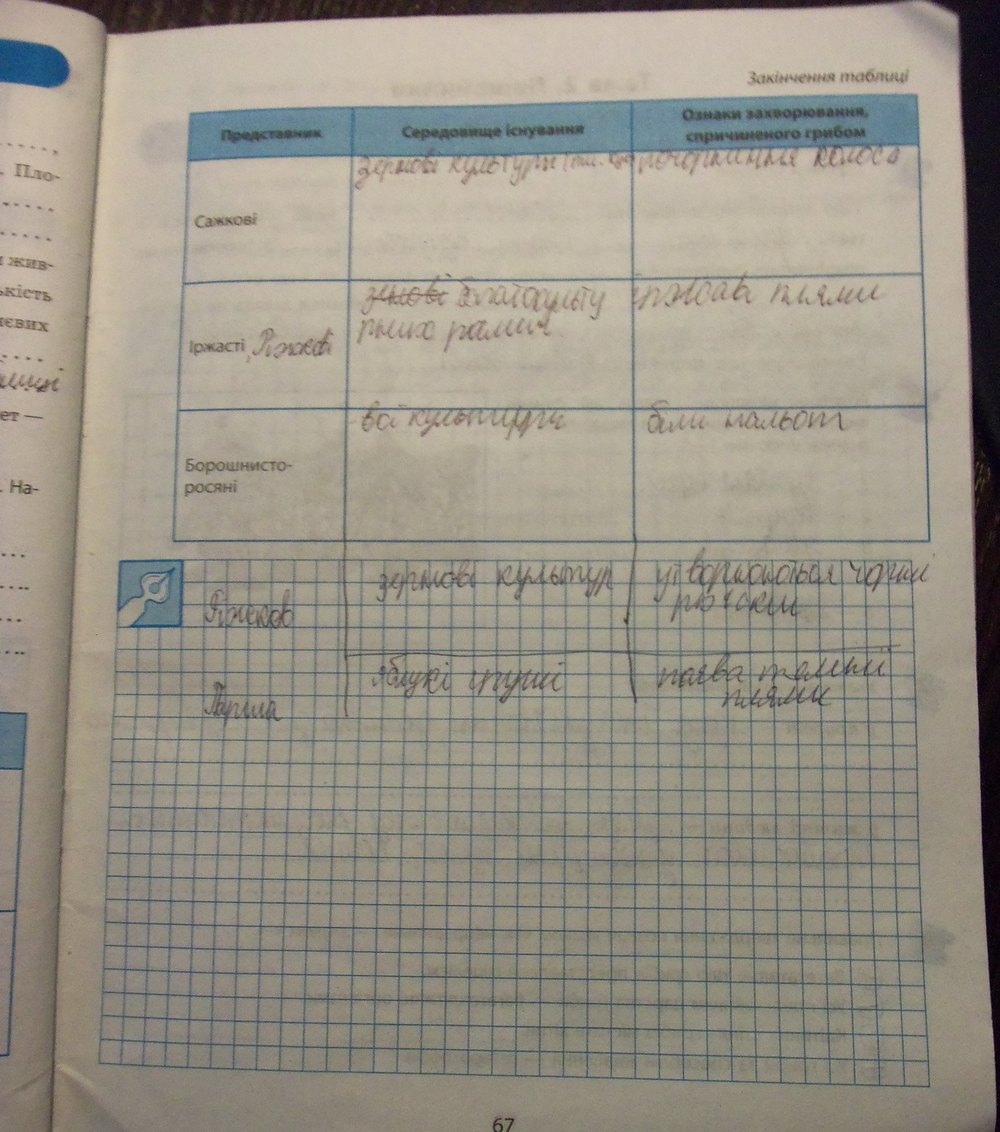 Пло-
жив-
ькість
євих
ет —
. На-
Закінчення таблиці
Представник
Середовище існування
Ознаки захворювання,
спричиненого грибом
Сажкові
зернові культури
почорніння колоса
Іржасті, Ріжкові
зенові багатокульту
рних рамич
іржаві плями
Борошнисто-
росяні
всі культури
білий нальот
Ріжков
зернові культур
утворюються чорни
ріжски
Парша
яблукі груші
поява темниї
плями
67